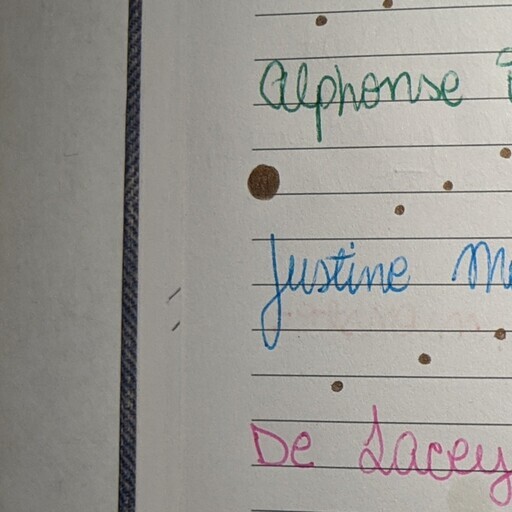 Alphonse
Justine
De Lacey